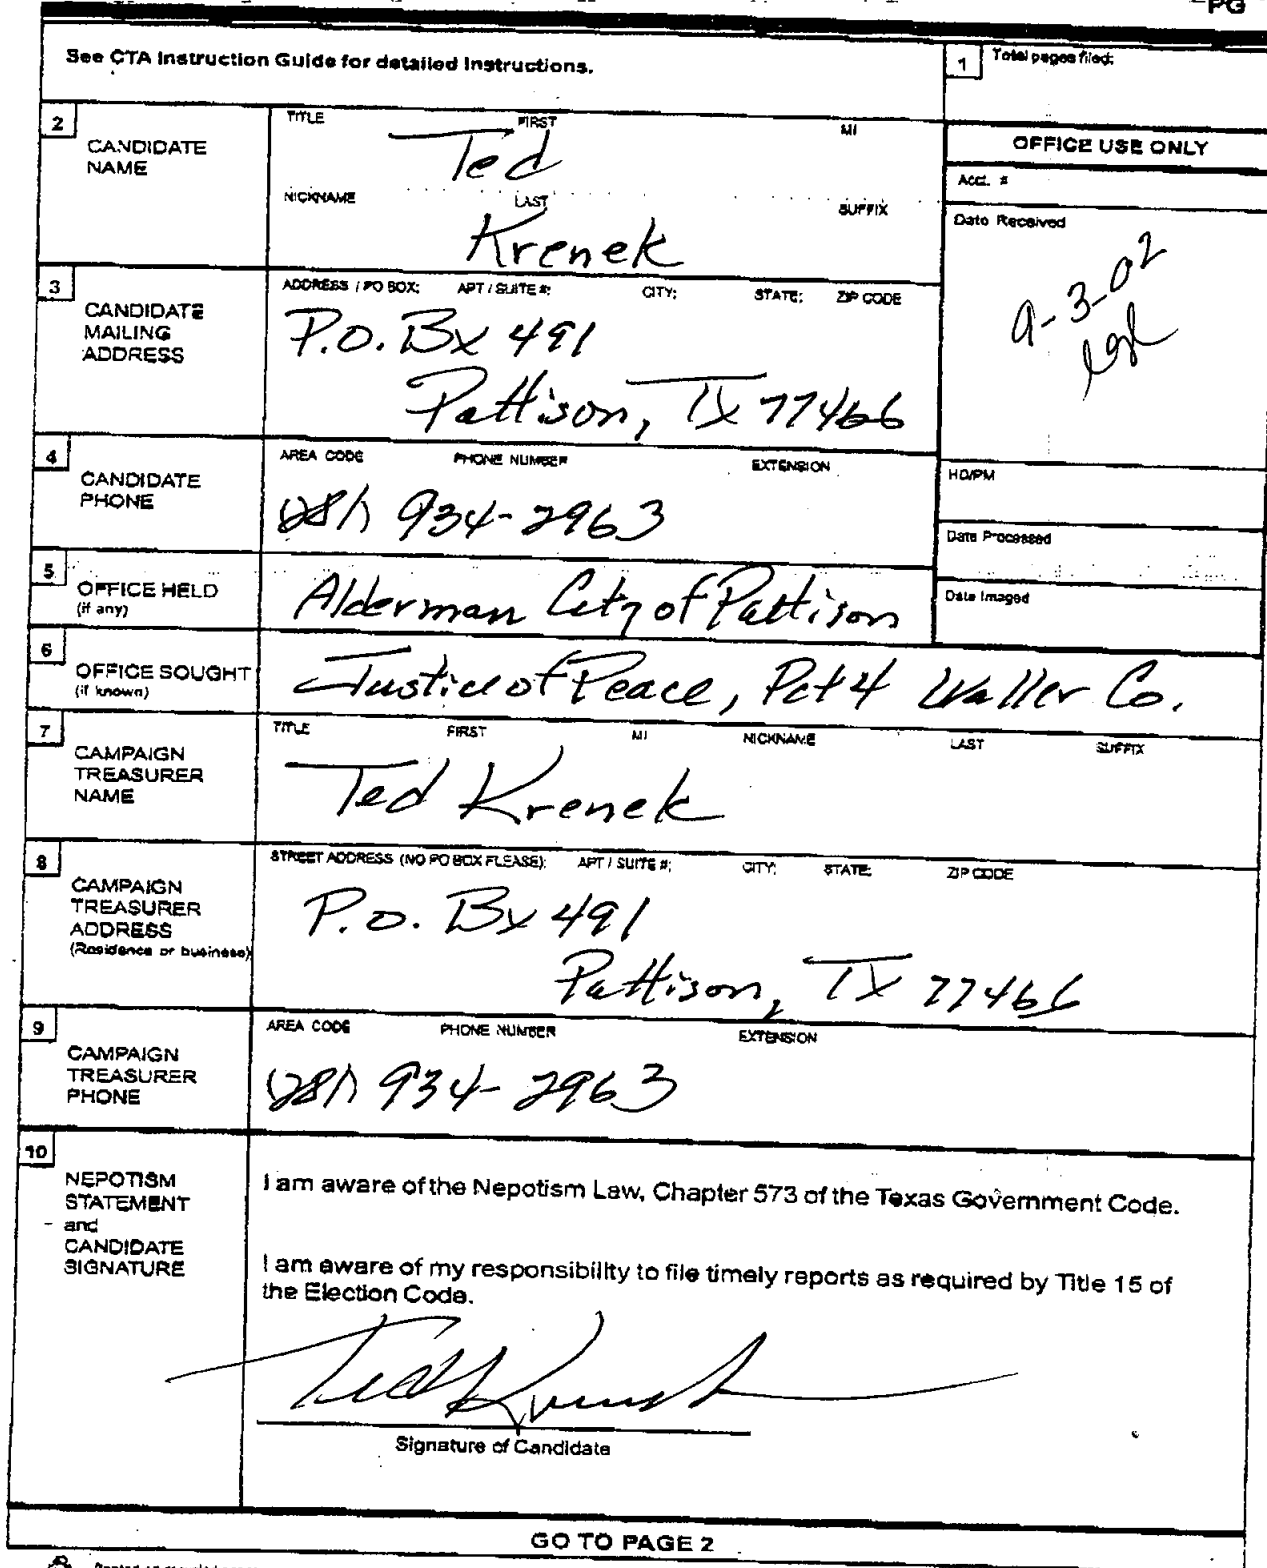 PG
See CTA Instruction Guide for detailed Instructions.
1 Total pages filed:
2 CANDIDATE NAME
TITLE FIRST MI
Ted
NICKNAME LAST SUFFIX
Krenek
OFFICE USE ONLY
Acct. #
Date Received
9-3-02
3 CANDIDATE MAILING ADDRESS
ADDRESS / PO BOX; APT / SUITE #; CITY; STATE; ZIP CODE
P.O. Bx 491
Pattison, TX 77466
4 CANDIDATE PHONE
AREA CODE PHONE NUMBER EXTENSION
(281) 934-2963
HD/PM
Date Processed
Date Imaged
5 OFFICE HELD (if any)
Alderman City of Pattison
6 OFFICE SOUGHT (if known)
Justice of Peace, Pct 4 Waller Co.
7 CAMPAIGN TREASURER NAME
TITLE FIRST MI NICKNAME LAST SUFFIX
Ted Krenek
8 CAMPAIGN TREASURER ADDRESS (Residence or business)
STREET ADDRESS (NO PO BOX PLEASE); APT / SUITE #; CITY; STATE; ZIP CODE
P.O. Bx 491
Pattison, TX 77466
9 CAMPAIGN TREASURER PHONE
AREA CODE PHONE NUMBER EXTENSION
(281) 934-2963
10 NEPOTISM STATEMENT and CANDIDATE SIGNATURE
I am aware of the Nepotism Law, Chapter 573 of the Texas Government Code.
I am aware of my responsibility to file timely reports as required by Title 15 of
the Election Code.
Ted Krenek
Signature of Candidate
GO TO PAGE 2